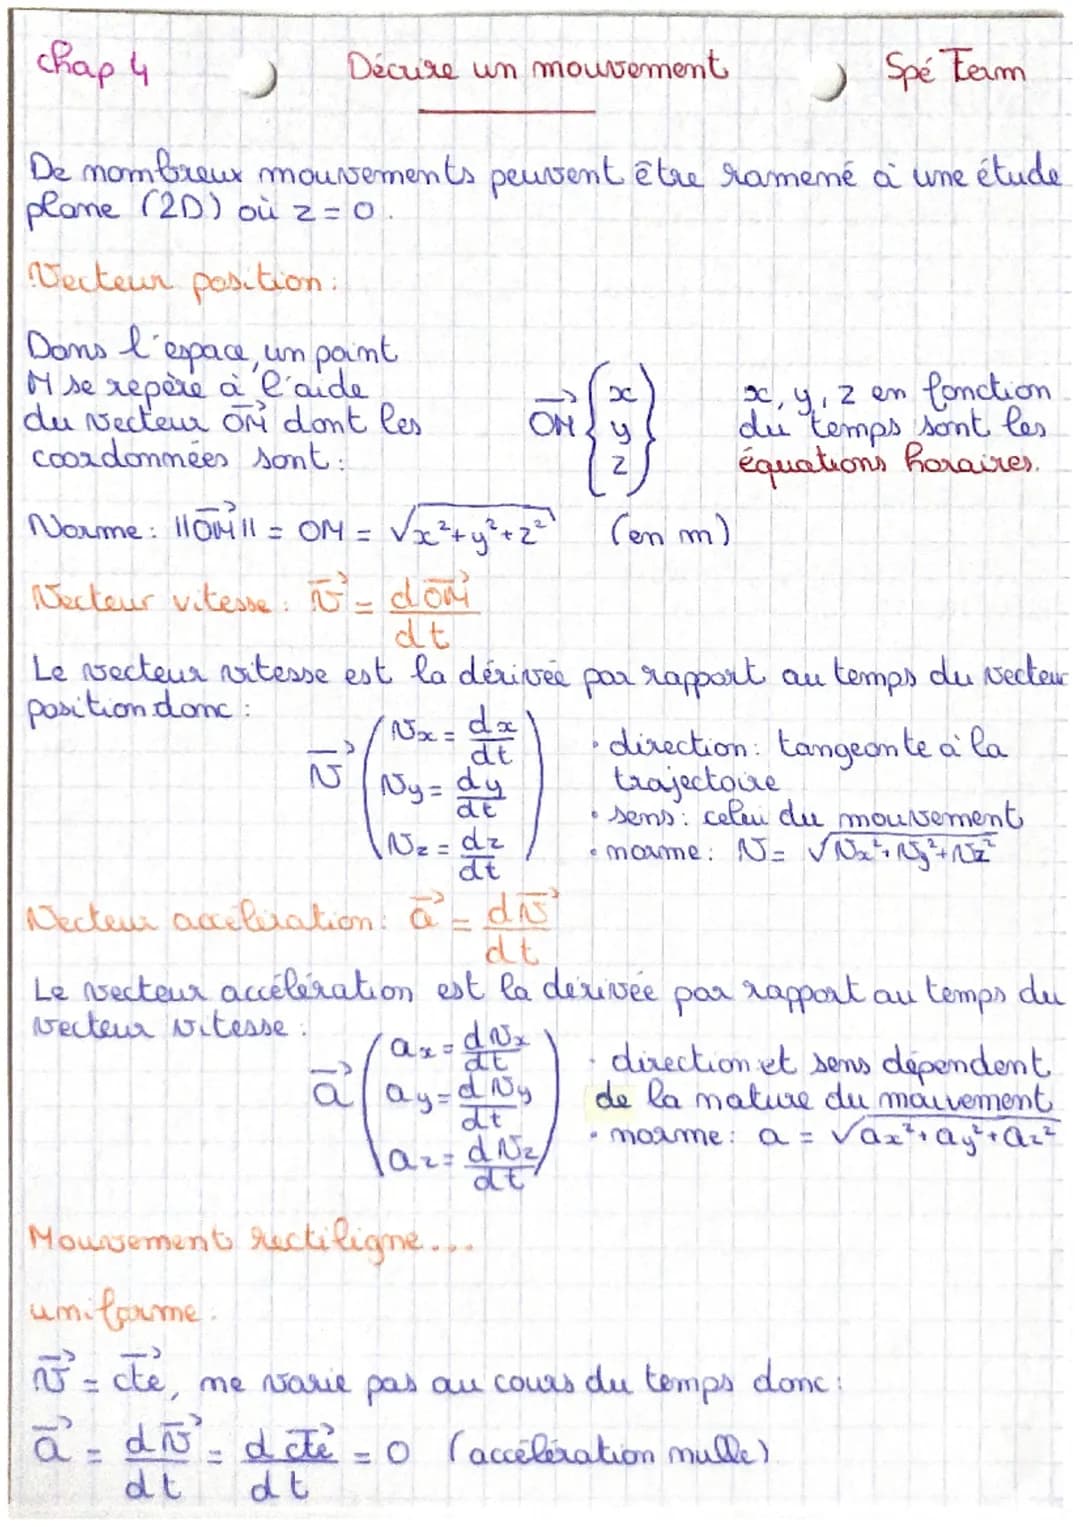 Chap 4 Décrire un mouvement Spé Term
De nombreux mouvements peuvent être ramené à une étude
plane (2D) où z = 0.
Vecteur position:
Dans l'espace, un point
M se repère à l'aide
du vecteur \vec{OM} dont les
coordonnées sont:
\vec{OM} { x y z }
x, y, z en fonction
du temps sont les
équations horaires.
Norme: ||\vec{OM}|| = OM = √(x²+y²+z²) (en m)
Vecteur vitesse: \vec{v} = d\vec{OM}/dt
Le vecteur vitesse est la dérivée par rapport au temps du vecteur
position donc:
\vec{v} ( vx = dx/dt
vy = dy/dt
vz = dz/dt )
• direction: tangeante à la
trajectoire
• sens: celui du mouvement
• norme: v = √(vx²+vy²+vz²)
Vecteur accélération: \vec{a} = d\vec{v}/dt
Le vecteur accélération est la dérivée par rapport au temps du
vecteur vitesse:
\vec{a} ( ax = dvx/dt
ay = dvy/dt
az = dvz/dt )
• direction et sens dépendent
de la nature du mouvement
• norme: a = √(ax²+ay²+az²)
Mouvement rectiligne...
uniforme:
\vec{v} = \vec{cte}, ne varie pas au cours du temps donc:
\vec{a} = d\vec{v}/dt = d\vec{cte}/dt = 0 (accélération nulle)